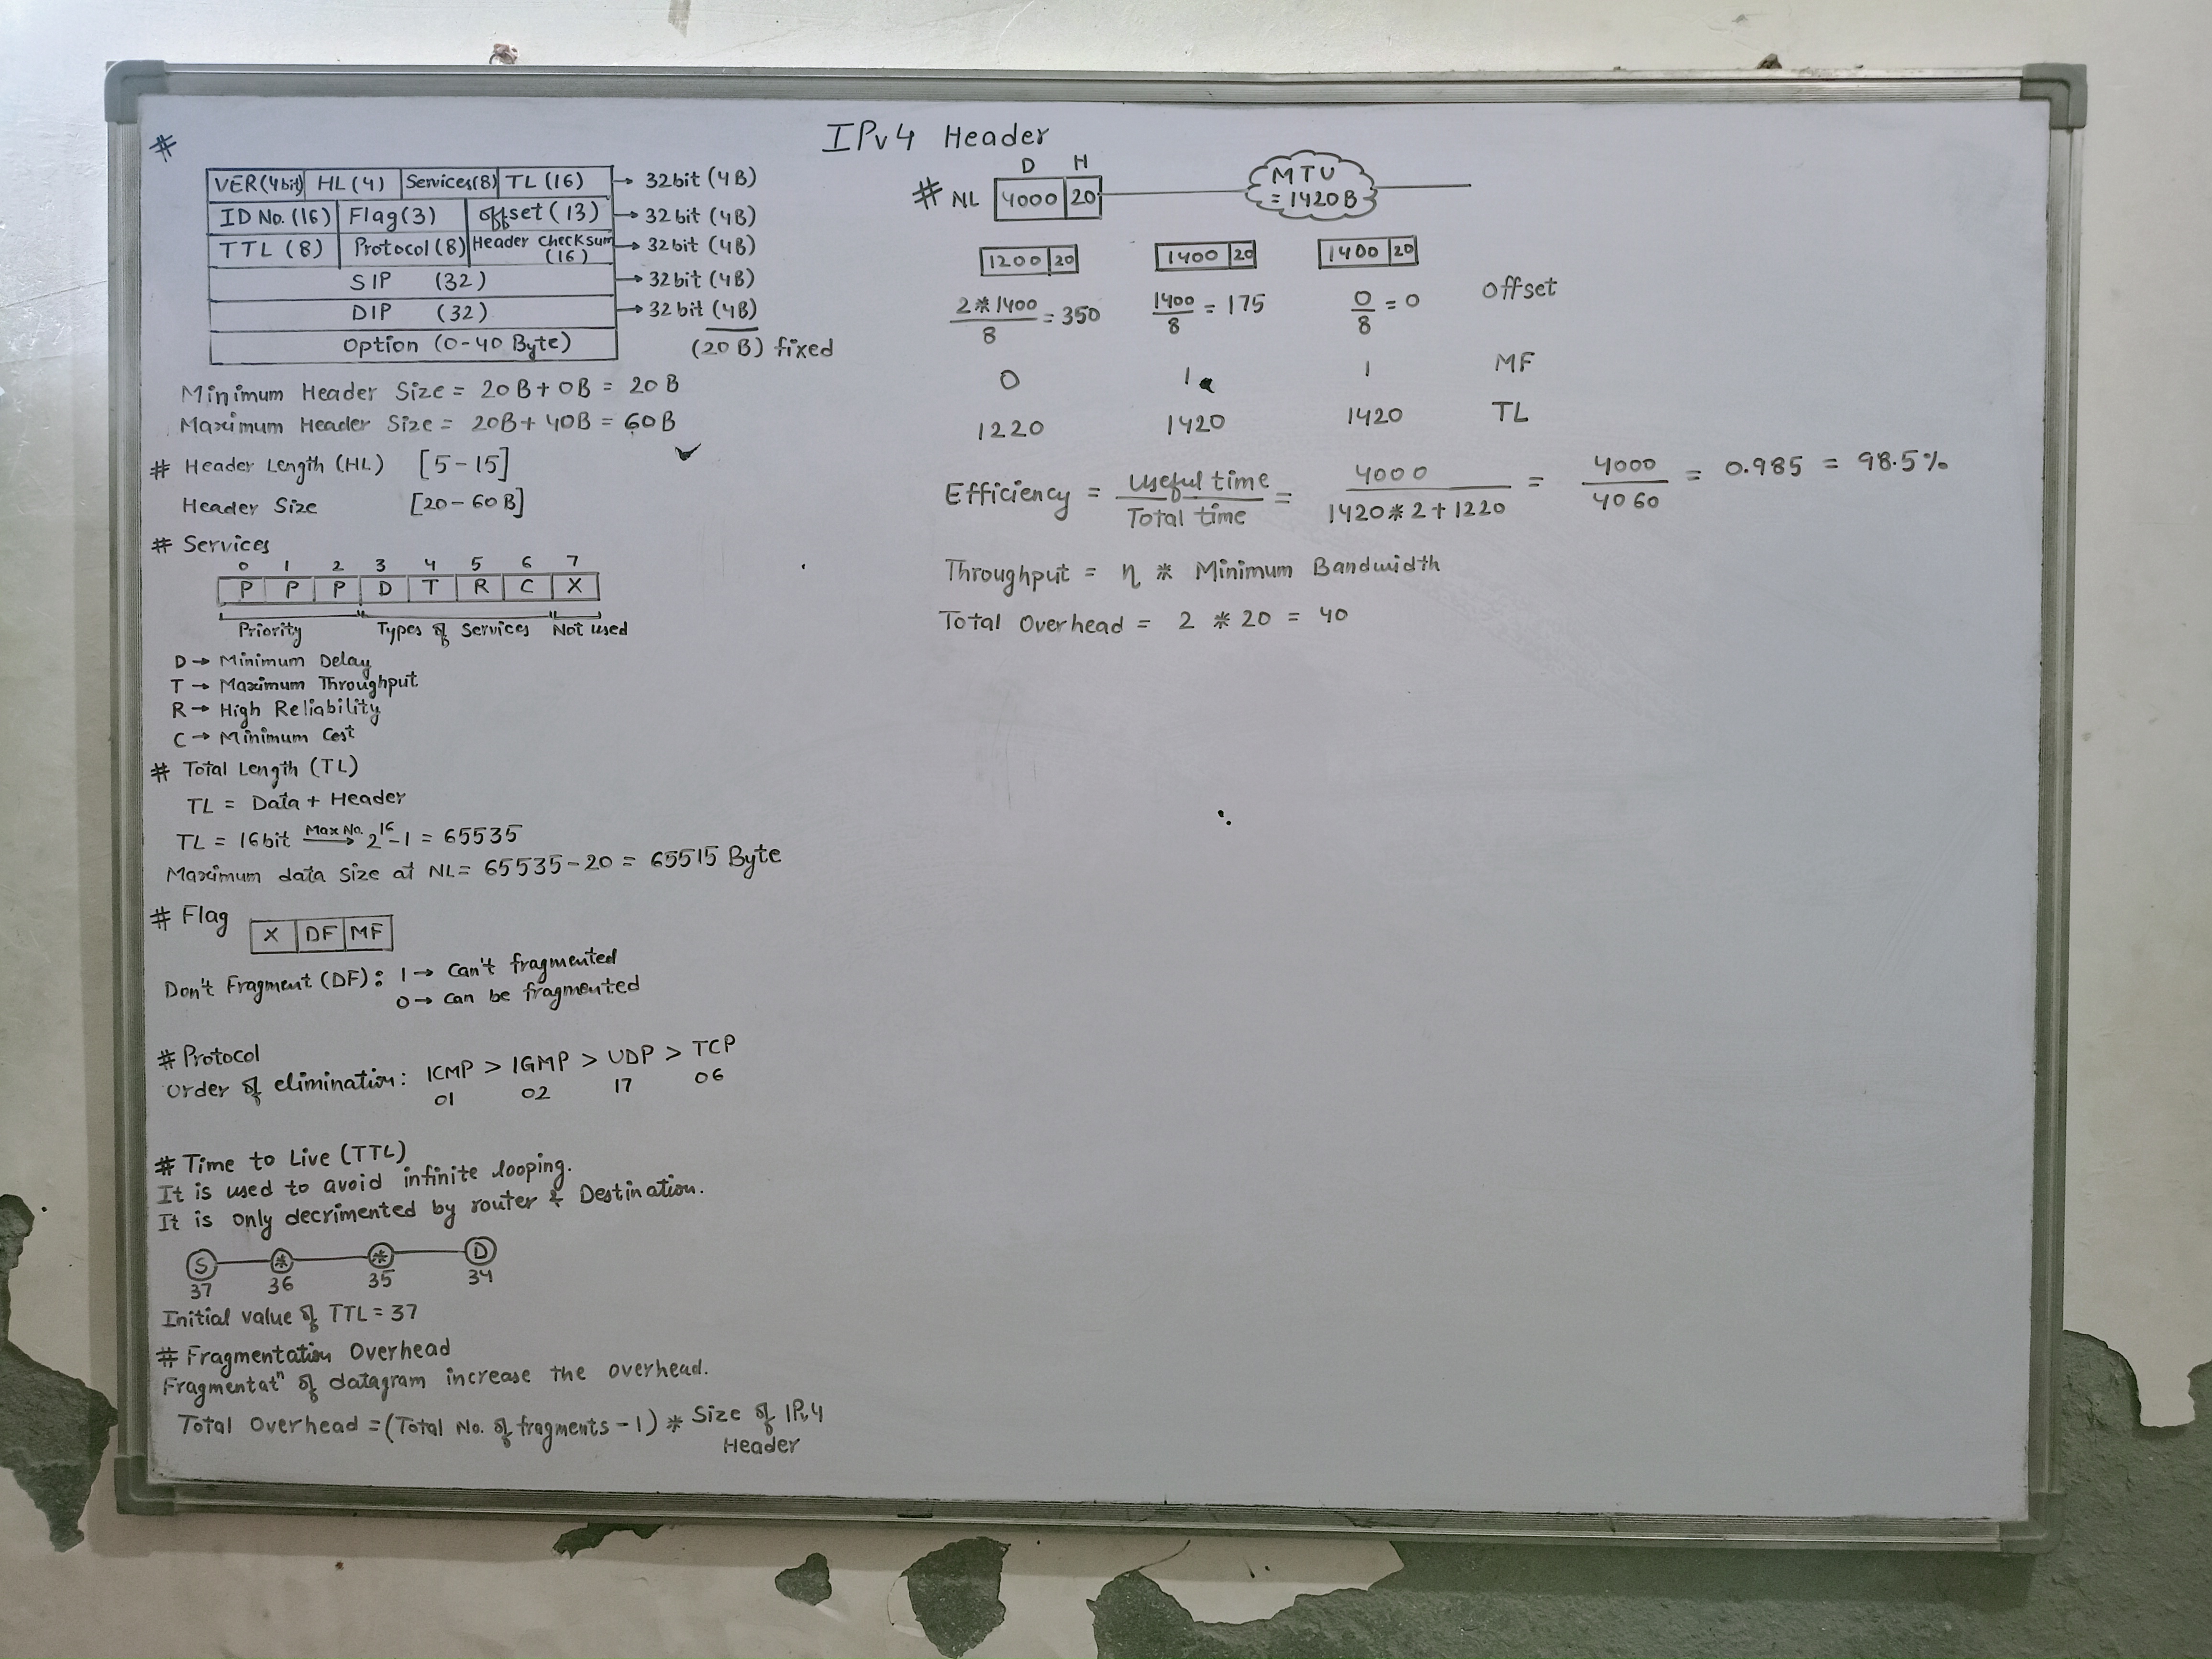 IPv4 Header
#
VER(4bit) HL(4) Services(8) TL(16) → 32bit (4B)
ID No.(16) Flag(3) offset(13) → 32bit (4B)
TTL(8) Protocol(8) Header Checksum (16) → 32bit (4B)
SIP (32) → 32bit (4B)
DIP (32) → 32bit (4B)
Option (0-40 Byte) (20B) fixed
Minimum Header Size = 20B + 0B = 20B
Maximum Header Size = 20B + 40B = 60B
# Header Length (HL) [5-15] ✓
Header Size [20-60B]
# Services
0 1 2 3 4 5 6 7
P P P D T R C X
Priority Types of Services Not used
D → Minimum Delay
T → Maximum Throughput
R → High Reliability
C → Minimum Cost
# Total Length (TL)
TL = Data + Header
TL = 16bit Max No.→ 2^16-1 = 65535
Maximum data size at NL = 65535-20 = 65515 Byte
# Flag X DF MF
Don't Fragment (DF): 1 → Can't fragmented
0 → can be fragmented
# Protocol
Order of elimination: ICMP > IGMP > UDP > TCP
01 02 17 06
# Time to Live (TTL)
It is used to avoid infinite looping.
It is only decrimented by router & Destination.
S * * D
37 36 35 34
Initial value of TTL = 37
# Fragmentation Overhead
Fragmentatⁿ of datagram increase the overhead.
Total Overhead = (Total No. of fragments - 1) * Size of IPv4
Header
D H
# NL 4000 20 MTU
= 1420B
1200 20 1400 20 1400 20
2*1400/8 = 350 1400/8 = 175 0/8 = 0 offset
0 1 1 MF
1220 1420 1420 TL
Efficiency = Useful time/Total time = 4000/1420*2+1220 = 4000/4060 = 0.985 = 98.5%
Throughput = η * Minimum Bandwidth
Total Overhead = 2 * 20 = 40